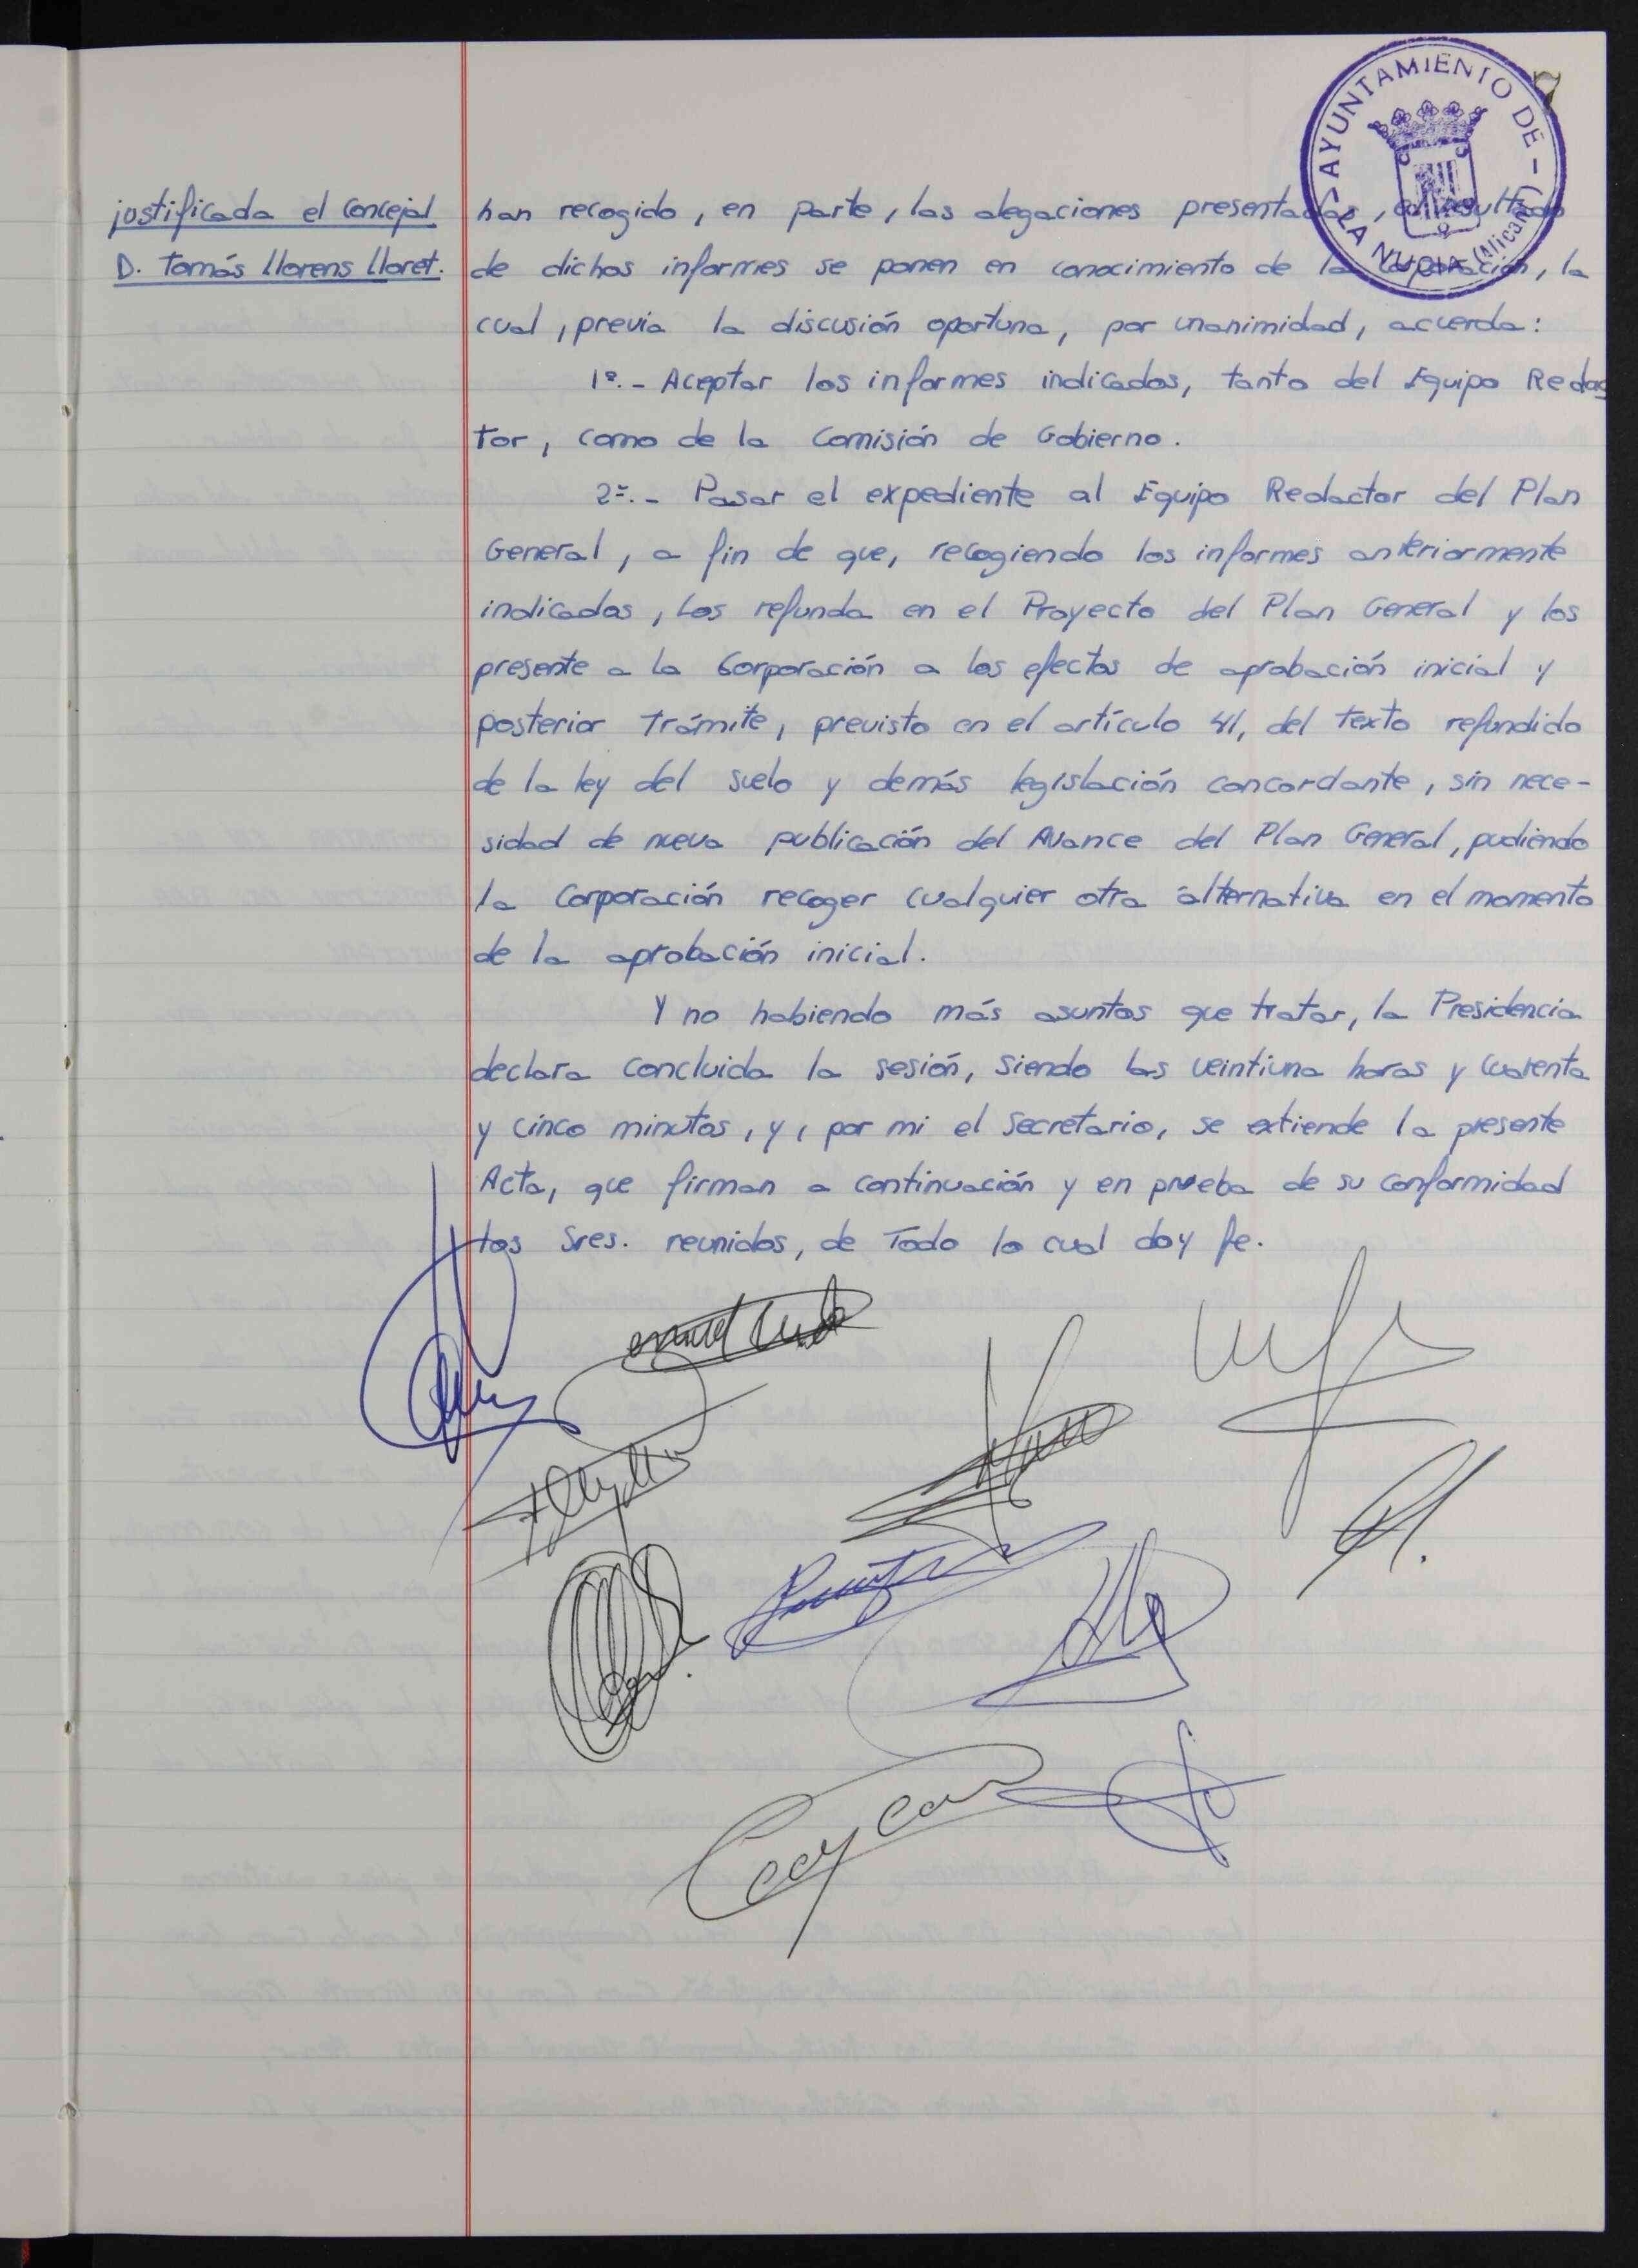 AYUNTAMIENTO DE - LA NUCIA (Alicante)
justificada el Concejal
D. Tomás Llorens Lloret.
han recogido, en parte, las alegaciones presentadas, el resultado
de dichos informes se ponen en conocimiento de la Corporación, la
cual, previa la discusión oportuna, por unanimidad, acuerda:
1º.- Aceptar los informes indicados, tanto del Equipo Redac
tor, como de la Comisión de Gobierno.
2º.- Pasar el expediente al Equipo Redactor del Plan
General, a fin de que, recogiendo los informes anteriormente
indicados, los refunda en el Proyecto del Plan General y los
presente a la Corporación a los efectos de aprobación inicial y
posterior trámite, previsto en el artículo 41, del texto refundido
de la ley del suelo y demás legislación concordante, sin nece-
sidad de nueva publicación del Avance del Plan General, pudiendo
la Corporación recoger cualquier otra alternativa en el momento
de la aprobación inicial.
Y no habiendo más asuntos que tratar, la Presidencia
declara concluida la sesión, siendo las veintiuna horas y cuarenta
y cinco minutos, y, por mi el Secretario, se extiende la presente
Acta, que firman a continuación y en prueba de su conformidad
los Sres. reunidos, de todo lo cual doy fe.